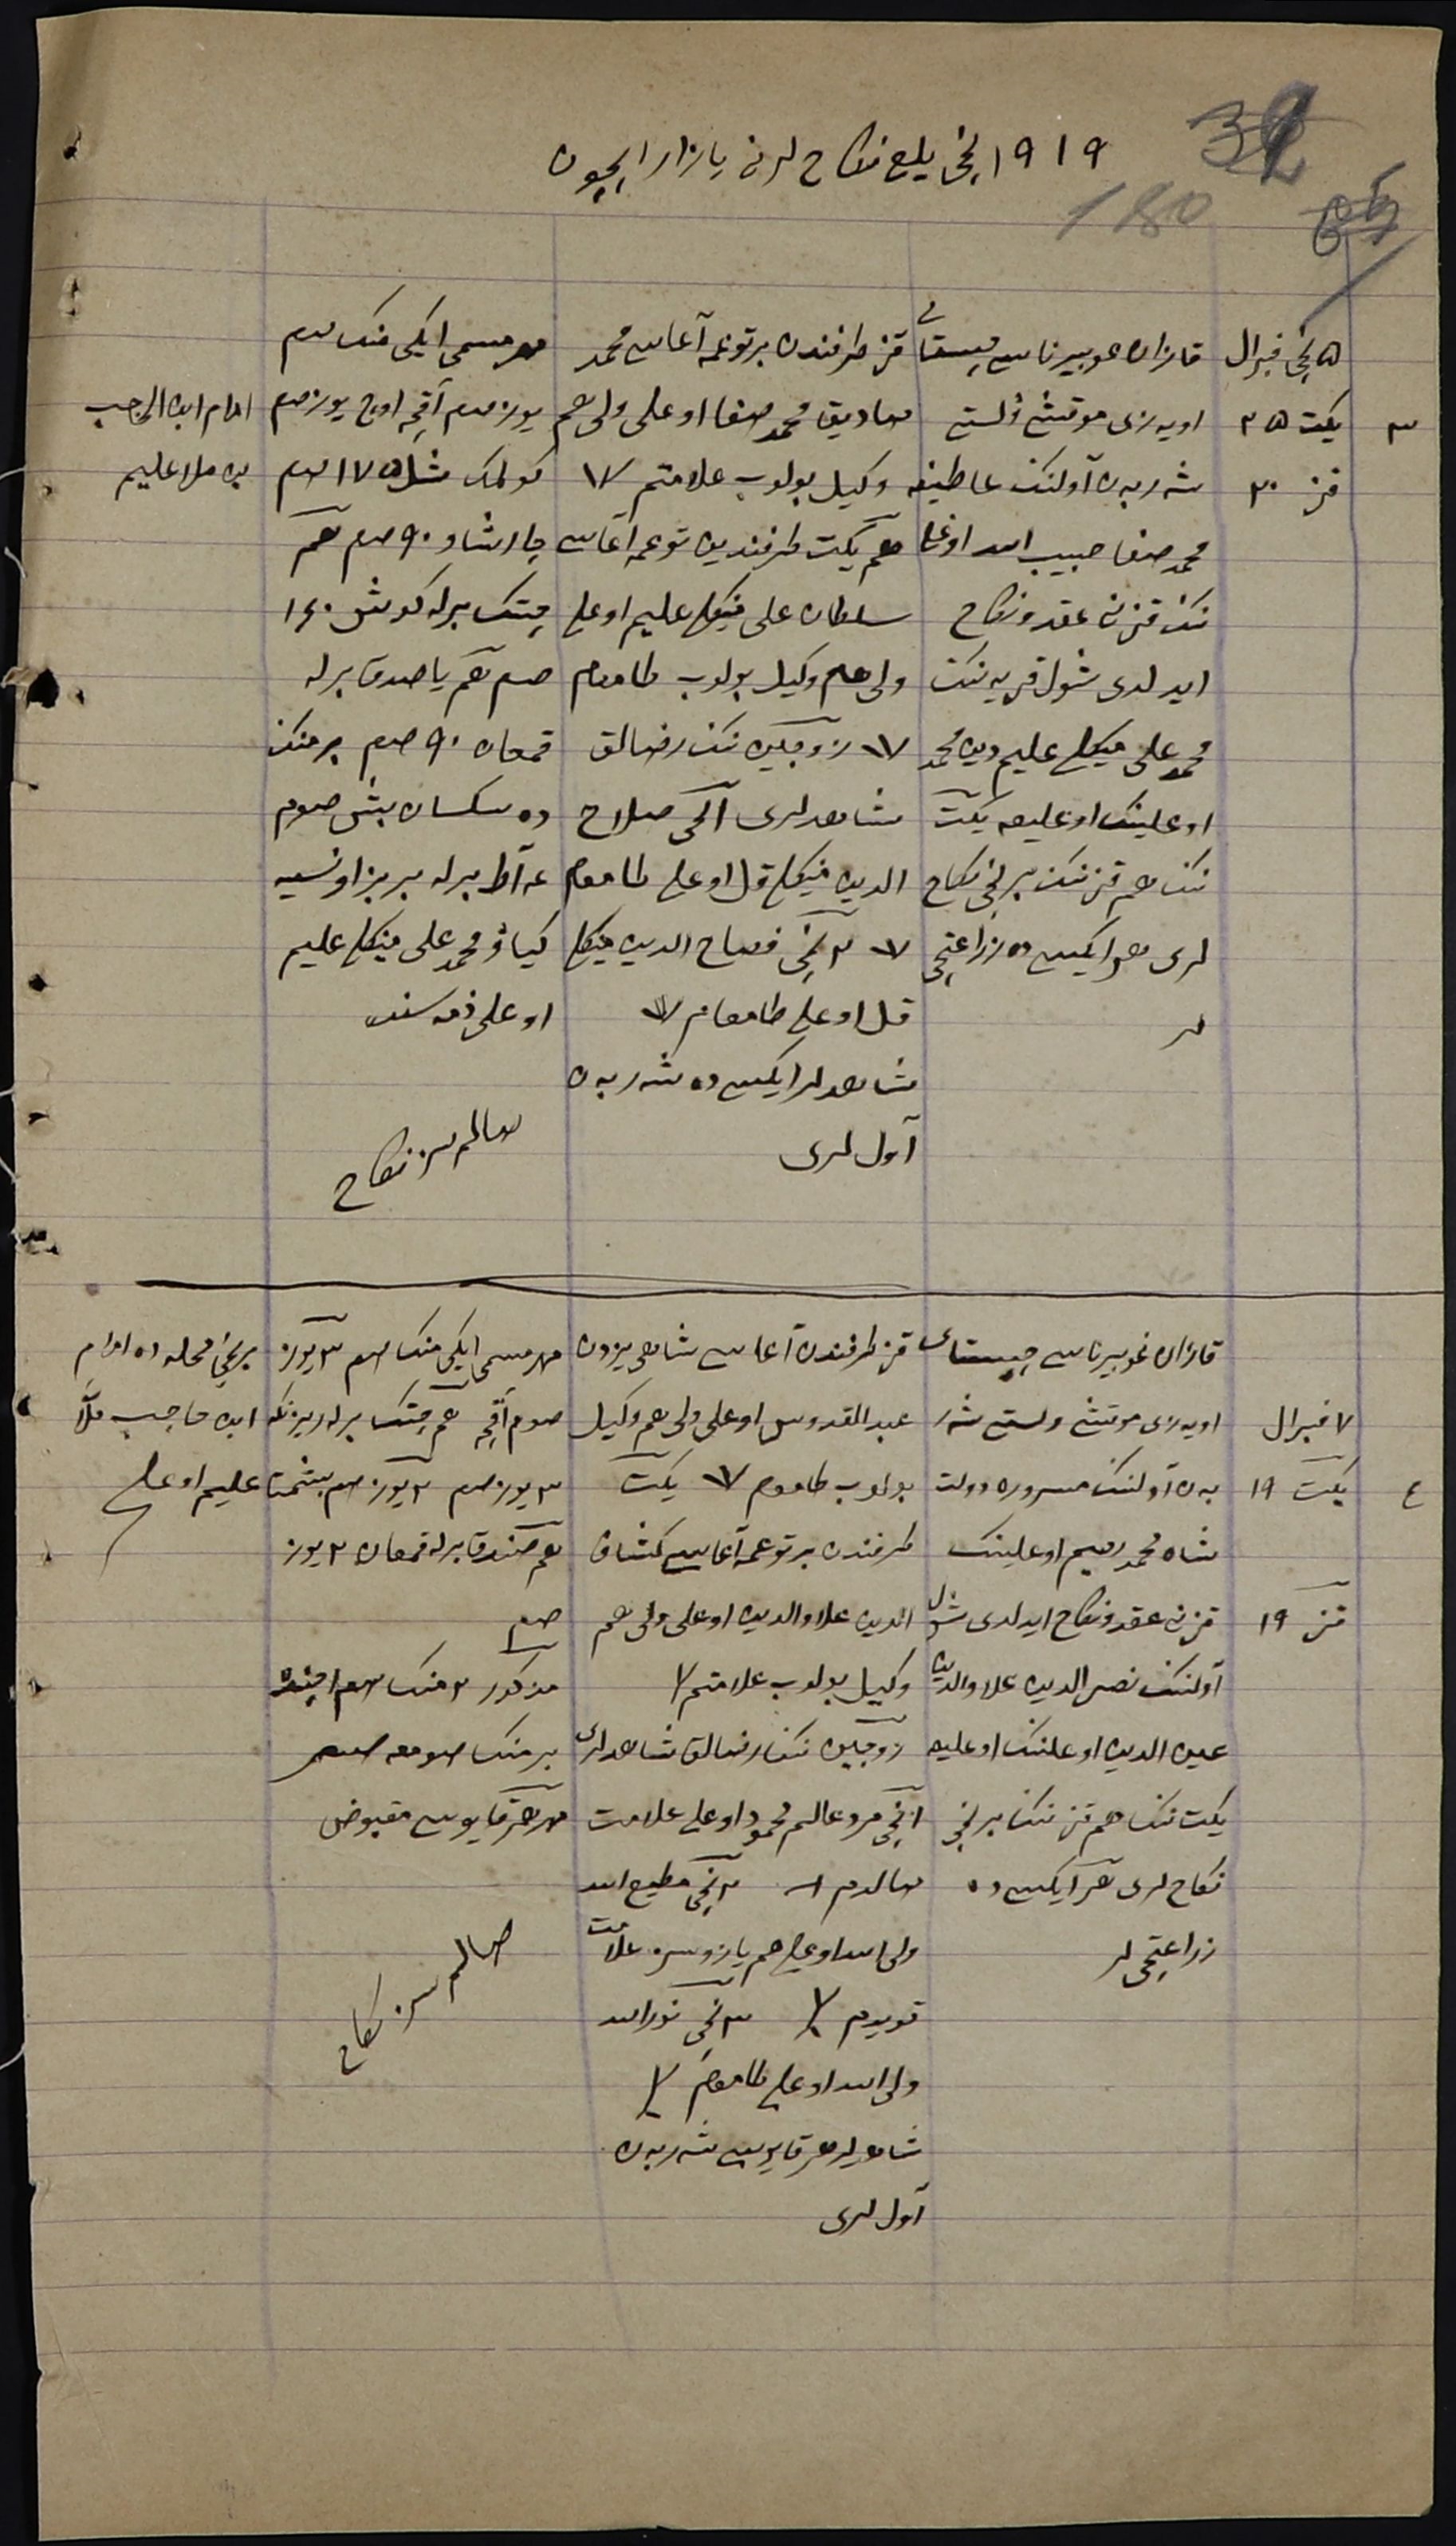 ١٩١٩ نچی یلغی نکاح لرنی یازار ایچون
32
180
٣
٥ نچی فبرال
یکت ٢٥
قز ٢٠
قازان غوبیرناسی چیستای
اویه زی موقتشی ولستی
شه ربه ن آولننک عاطیفه
محمد صفا حبیب الله اوغلی
ننک قزنی عقد و نکاح
ایدلدی شول قریه ننک
محمد علی میکلی علیم دین محمد
اوغلیننک اوغلیغه یکت
ننک هم قز ننک برنچی نکاح
لری هر ایکیسی ده زراعتچی
لر
قز طرفندن بر توغمه آغاسی محمد
صادیق محمد صفا اوغلی ولی هم
وکیل بولوب علامتم
هم یکت طرفندین توغمه آغاسی
سلطان علی میکلی علیم اوغلی
ولی هم وکیل بولوب طامغام
زوجین ننک رضالق
شاهدلری ١نچی صلاح
الدین میکلی قل اوغلی طامغام
٢ نچی فصاح الدین میکلی
قل اوغلی طامغام
شاهدلر ایکیسی ده شه ربه ن
آول لری
مهر مسمی ایکی منک صم
یوز صم آقچه اوچ یوز صم
کولمک شل ١٧٥ صم
چارشاو ٩٠ صم هم
چیتک برله کوش ١٤٠
صم هم یاصدق برله
قمغان ٩٠ صم بر منک
ده سکسان بش صوم
غه آط برله بریزاونسیه
کیاو محمد علی میکلی علیم
اوغلی ذمه سنده
صالم سز نکاح
امام ابن الحاجب
بن ملا علیم
٤
٧ فبرال
یکت ١٩
قز ١٩
قازان غوبیرناسی چیستای
اویه زی موقتشی ولستی شه ر
به ن آولننک مسروره دولت
شاه محمد رحیم اوغلیننک
قزنی عقد و نکاح ایدلدی شول
آولننک نصر الدین علاء الدین
عین الدین اوغلننک اوغلیه
یکت ننک هم قز ننک برنچی
نکاح لری هر ایکیسی ده
زراعتچی لر
قز طرفندن آغاسی شاهی یزدن
عبد القدوس اوغلی ولی هم وکیل
بولوب طامغم یکت
طرفندن بر توغمه آغاسی کشاف
الدین علاء الدین اوغلی ولی هم
وکیل بولوب علامتم
زوجین ننک رضالق شاهدلری
١نچی مرد عالم محمود اوغلی علامت
صالدم ٢ نچی مطیع الله
ولی الله اوغلی هم یازوسز علامت
قویدم ٣ نچی نور الله
ولی الله اوغلی طامغام
شاهدلر هر قایوسی شه ربه ن
آول لری
مهر مسمی ایکی منک صم ٣ یوز
صوم آقچه هم چیتک برله
٣ یوز صم ٢ یوز صم بیشمت
هم صندق برله قمغان ٢ یوز
صم
مذکور ٢ منک صم ایچنده
بر منک صومغه
مهر هر قایوسی مقبوض
صالم سز نکاح
برنچی محله ده امام
ابن حاجب ملا
علیم اوغلی